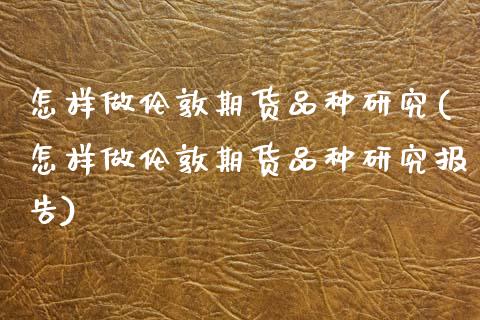 怎样做伦敦期货品种研究(
怎样做伦敦期货品种研究报
告)